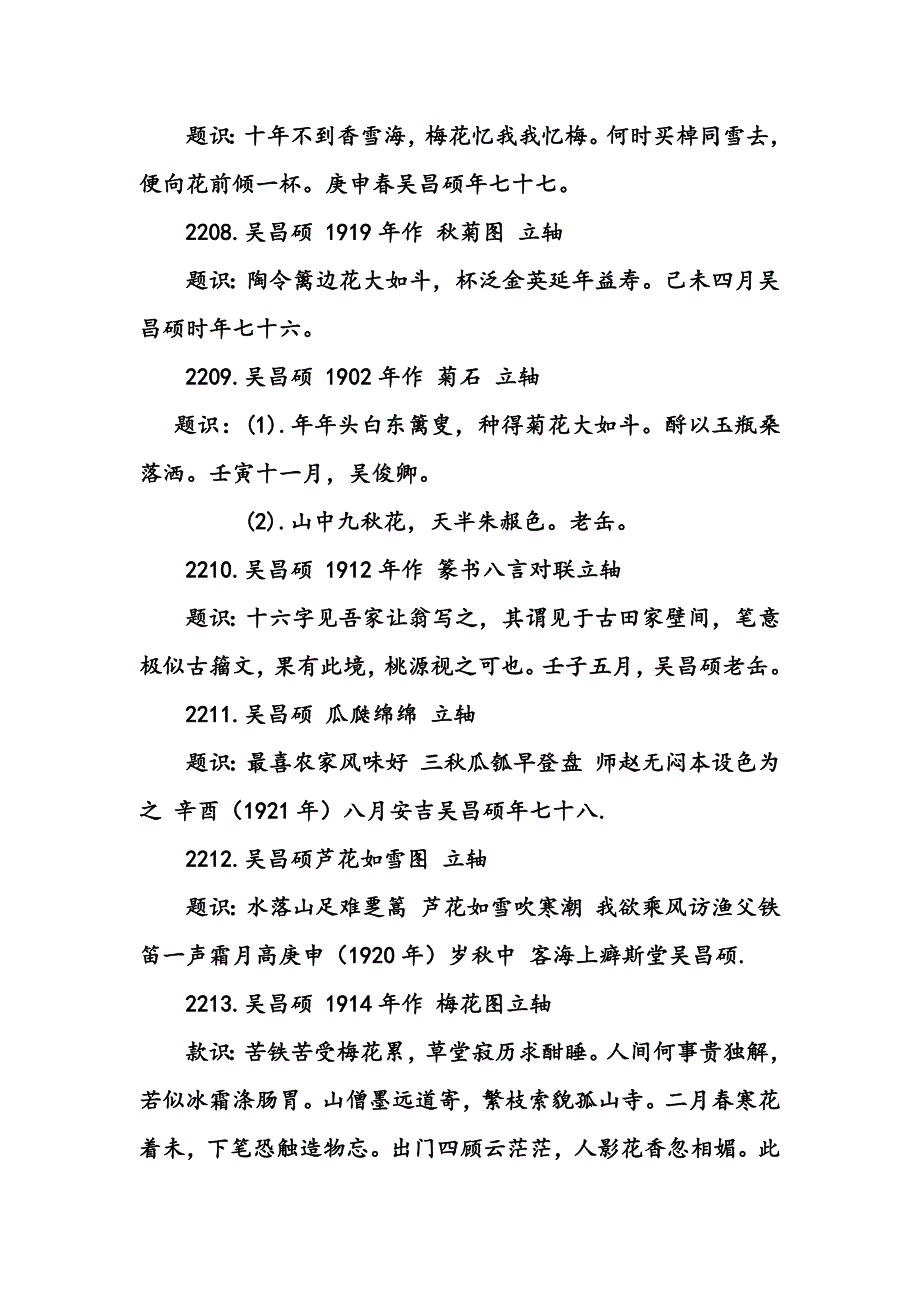 题识：十年不到香雪海，梅花忆我我忆梅。何时买棹同雪去，
便向花前倾一杯。庚申春吴昌硕年七十七。
2208.吴昌硕 1919 年作 秋菊图 立轴
题识：陶令篱边花大如斗，杯泛金英延年益寿。己未四月吴
昌硕时年七十六。
2209.吴昌硕 1902 年作 菊石 立轴
题识：(1).年年头白东篱叟，种得菊花大如斗。酹以玉瓶桑
落洒。壬寅十一月，吴俊卿。
(2).山中九秋花，天半朱赧色。老缶。
2210.吴昌硕 1912 年作 篆书八言对联立轴
题识：十六字见吾家让翁写之，其谓见于古田家壁间，笔意
极似古籀文，果有此境，桃源视之可也。壬子五月，吴昌硕老缶。
2211.吴昌硕 瓜瓞绵绵 立轴
题识：最喜农家风味好 三秋瓜瓠早登盘 师赵无闷本设色为
之 辛酉（1921 年）八月安吉吴昌硕年七十八.
2212.吴昌硕芦花如雪图 立轴
题识：水落山足难垔篙 芦花如雪吹寒潮 我欲乘风访渔父铁
笛一声霜月高庚申（1920 年）岁秋中 客海上癖斯堂吴昌硕.
2213.吴昌硕 1914 年作 梅花图立轴
款识：苦铁苦受梅花累，草堂寂历求酣睡。人间何事贵独解，
若似冰霜涤肠胃。山僧墨远道寄，繁枝索貌孤山寺。二月春寒花
着未，下笔恐触造物忘。出门四顾云茫茫，人影花香忽相媚。此